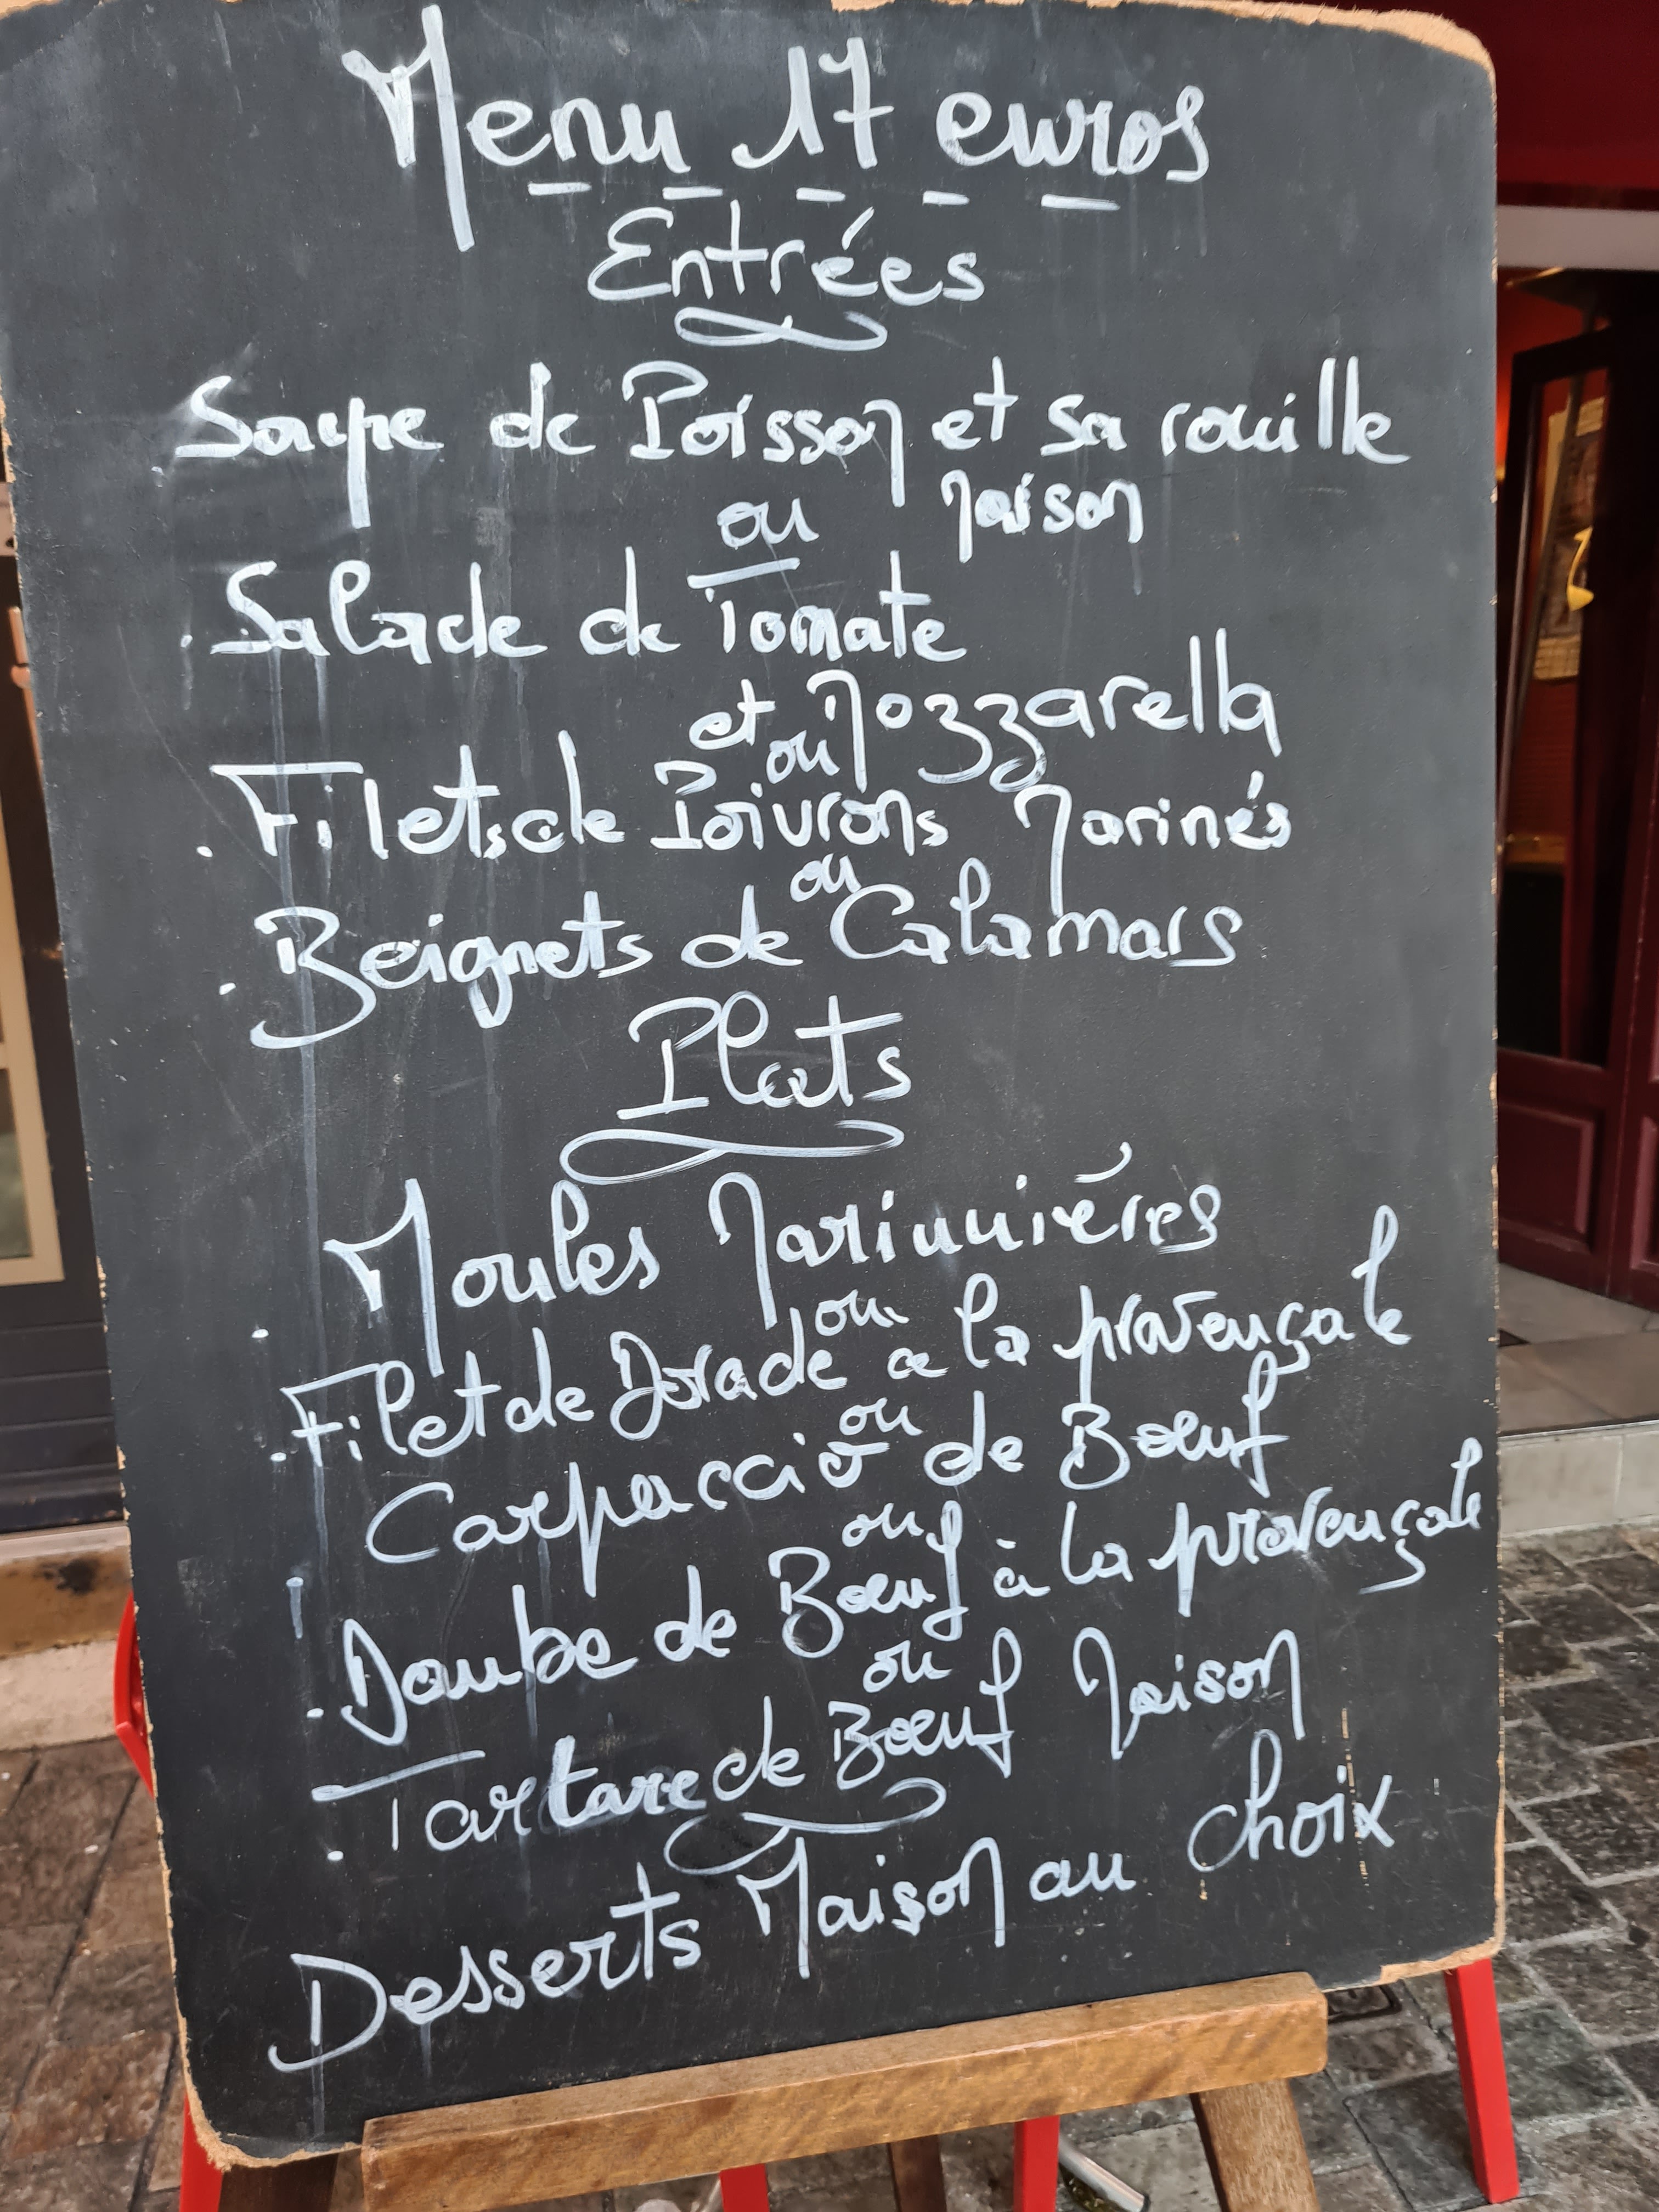 Menu 17 euros
Entrées
Soupe de Poisson et sa rouille
ou Maison
. Salade de Tomate
et Mozzarella
ou
. Filets de Poivrons Marinés
ou
. Beignets de Calamars
Plats
. Moules Marinnières
ou
. Filet de Dorade a la provençale
ou
Carpaccio de Bœuf
ou
. Daube de Bœuf à la provençale
ou
. Tartare de Bœuf Maison
Desserts Maison au choix